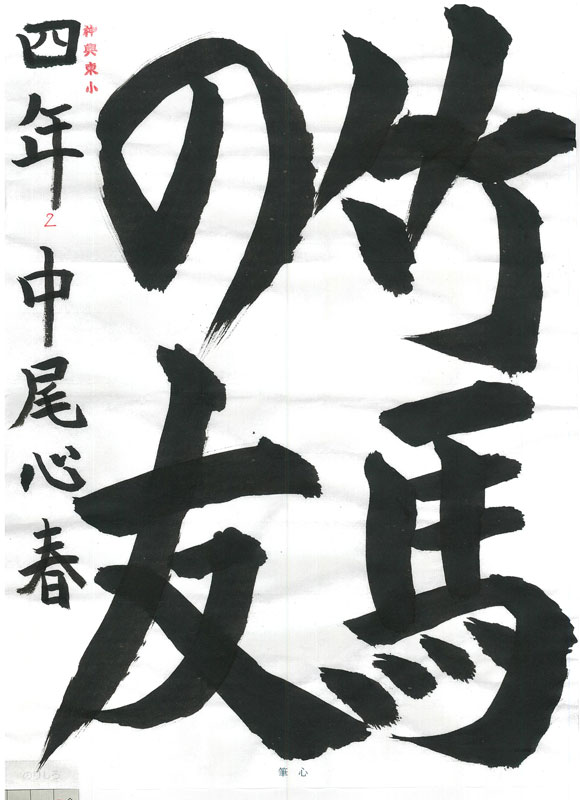 竹馬
の友
四年 中尾心春
神興東小
2
筆心
のりしろ